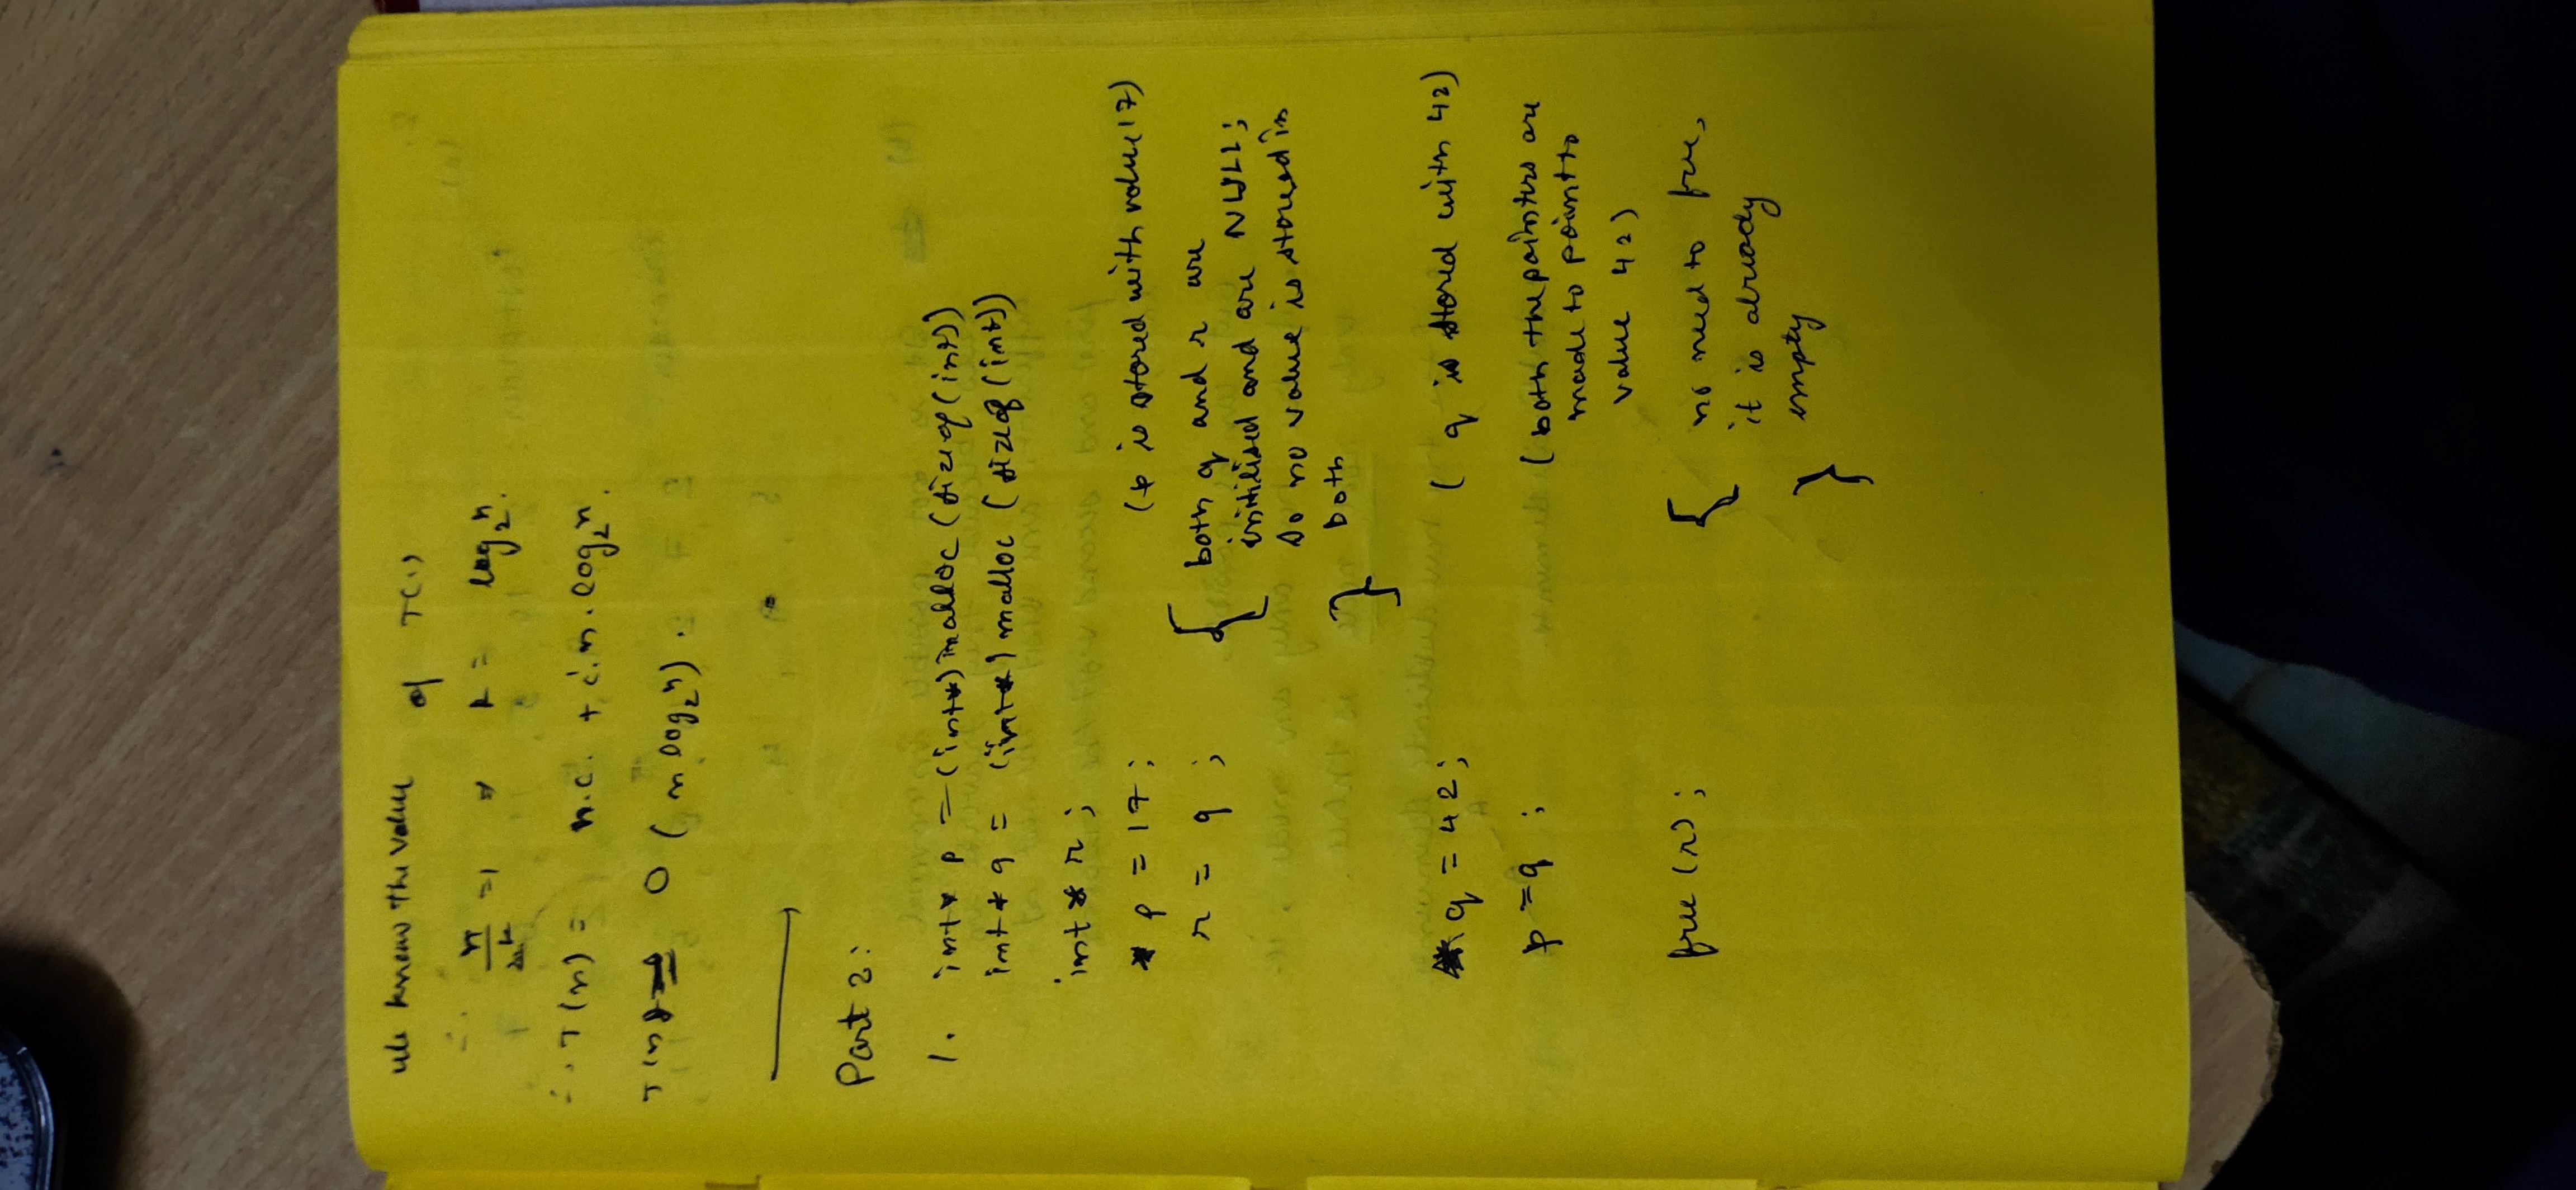 we know the value of T(1)
n/2^k =1 ⇒ k = log₂n.
∴ T(n) = n.c. + c'.n.log₂n.
T(n) = O(n log₂n).
Part 2:
1. int* p = (int*) malloc (sizeof(int))
int * q = (int*) malloc (sizeof(int))
int * r ;
* p = 17 ; (p is stored with value 17)
r = q ; { both q and r are
initilised and are NULL;
so no value is stored in
} both
* q = 42 ; ( q is stored with 42)
p = q ; ( both the pointers are
made to point to
value 42)
free (r) ; { no need to free,
it is already
empty
}